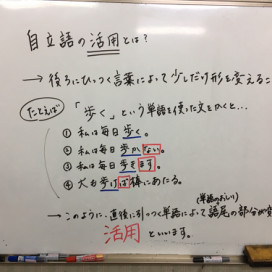 自立語の活用とは?
→ 後ろにひっつく言葉によって少しだけ形を変えるこ
たとえば 「歩く」という単語を使った文をかくと…
① 私は毎日歩く。
② 私は毎日歩かない。
③ 私は毎日歩きます。
④ 犬も歩けば棒にあたる。
(単語のおしり)
→ このように、直後に引っつく単語によって語尾の部分が変
活用 といいます。